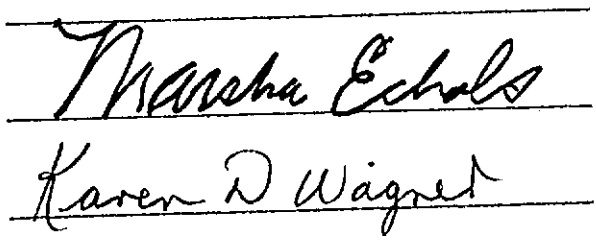 Marsha Echols
Karen D Wagner